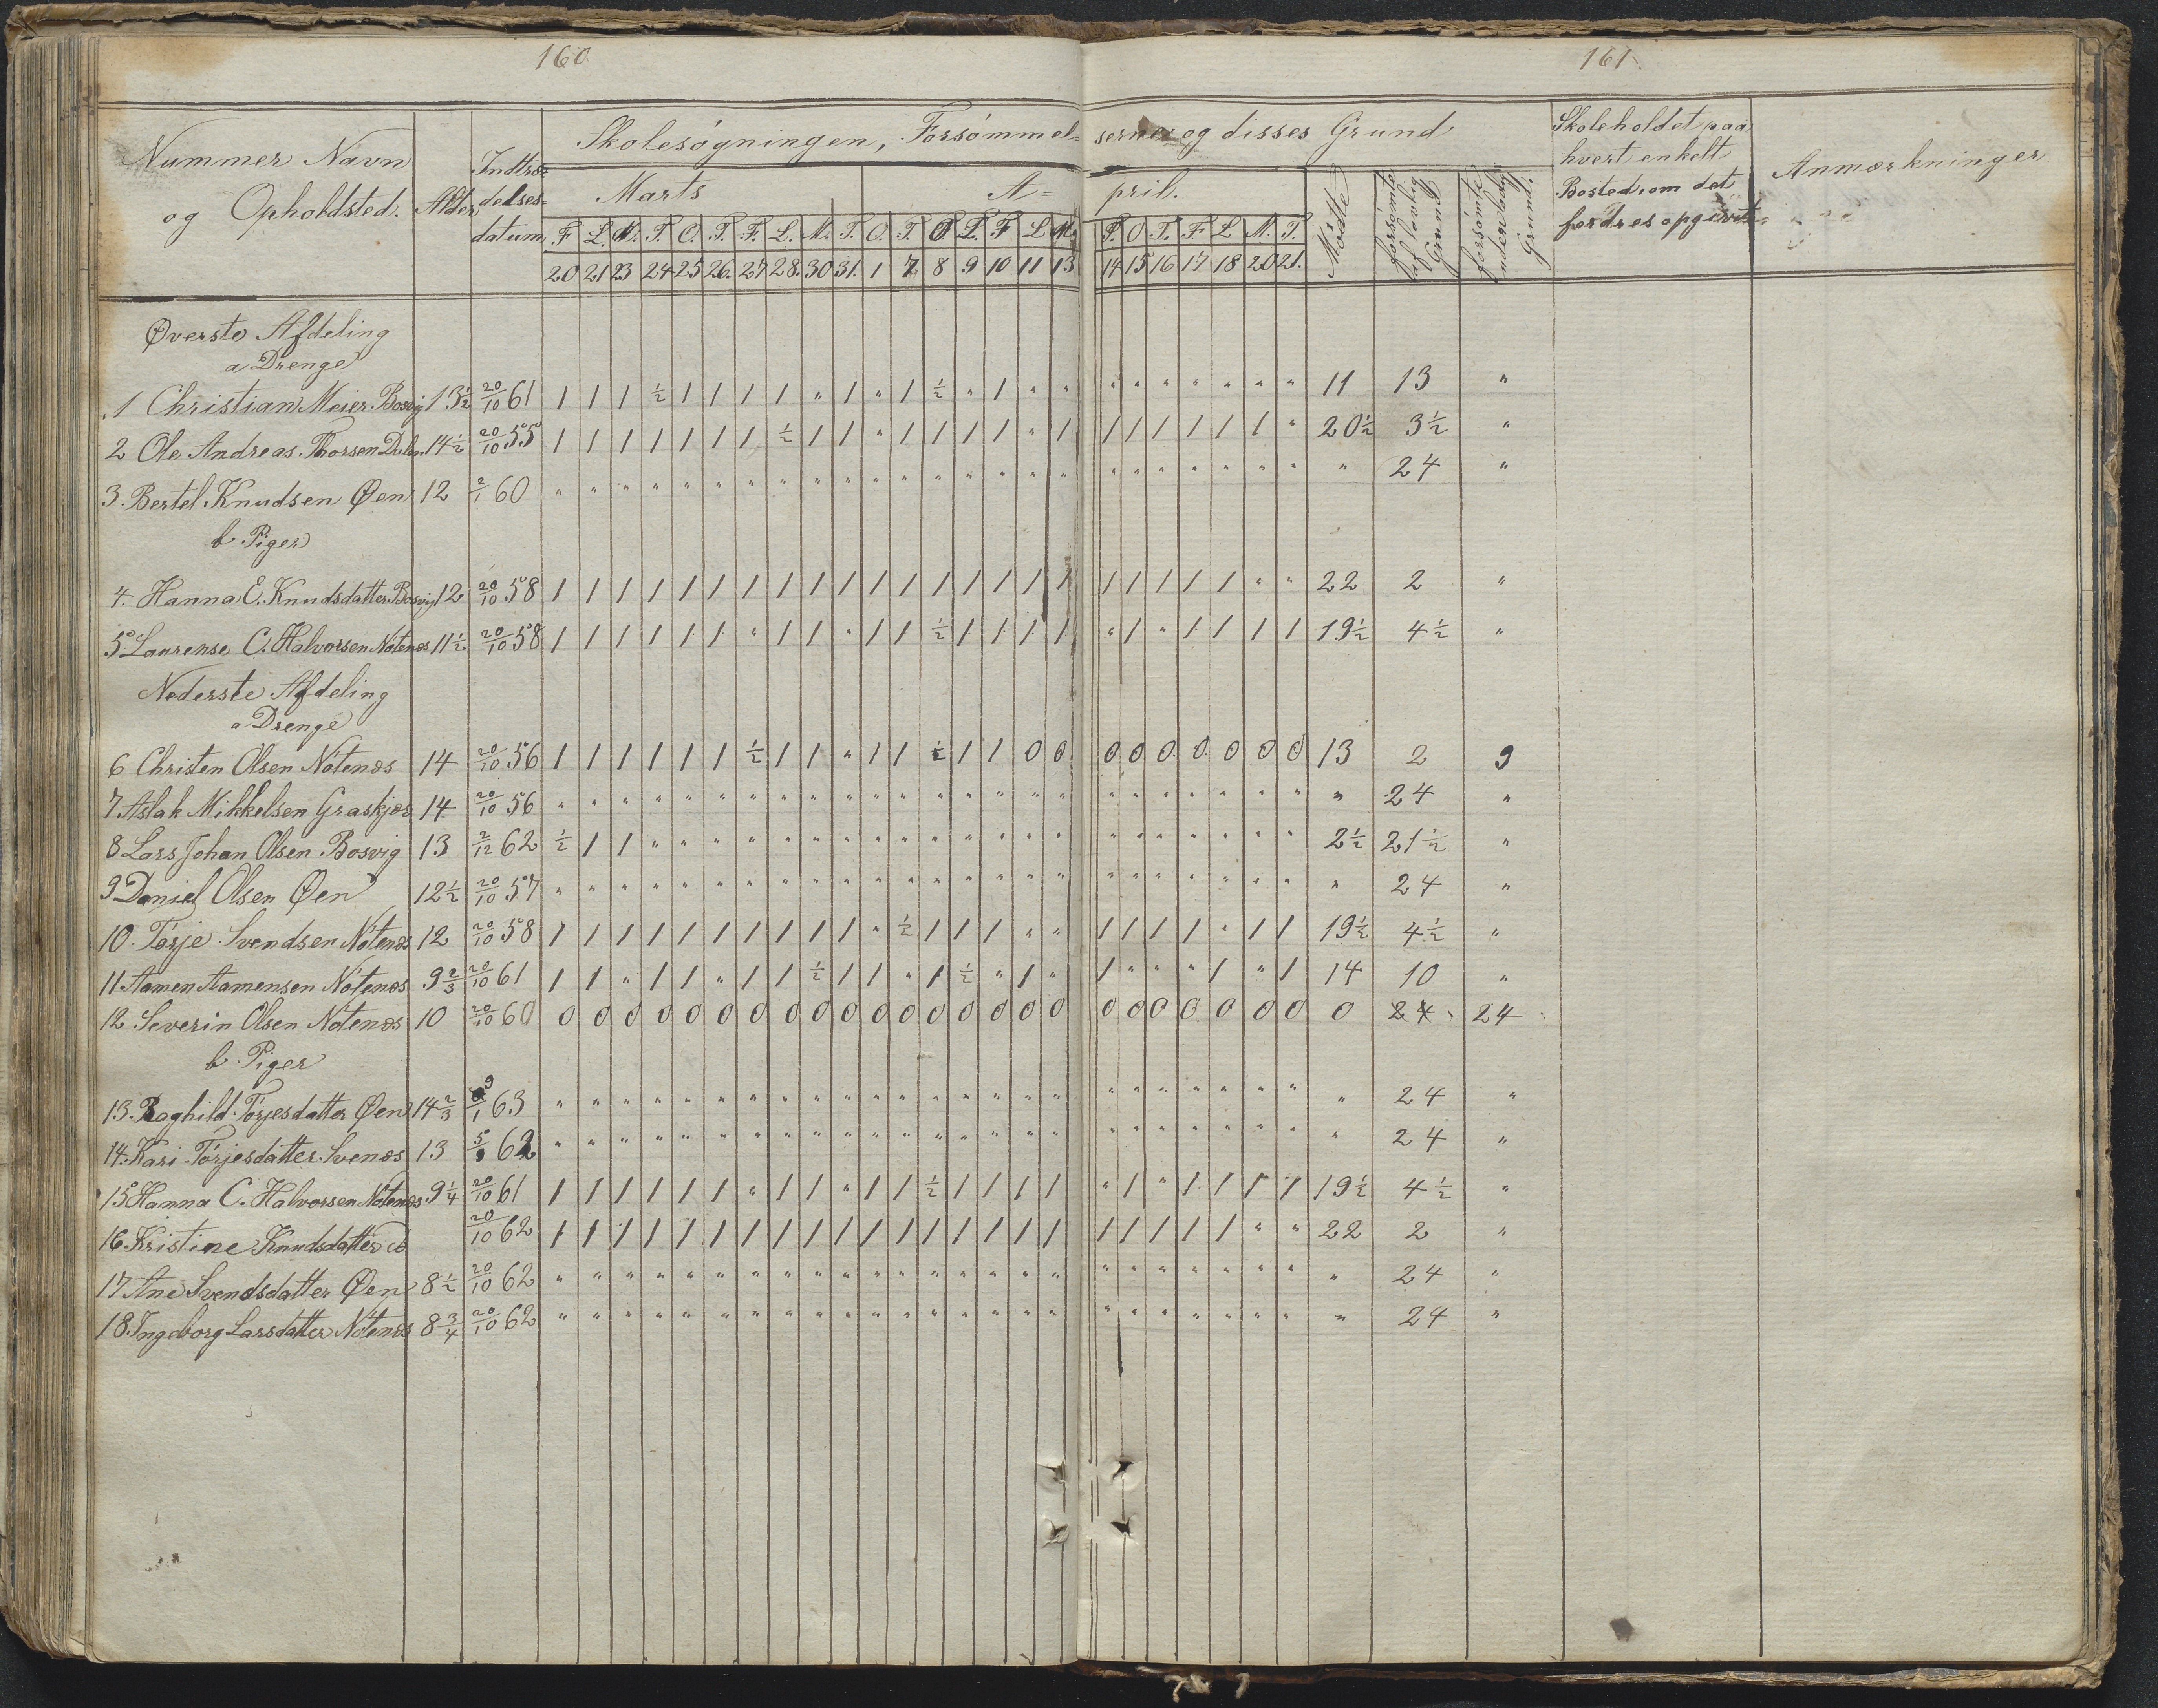 160
161
Nummer Navn og Opholdsted. Alder Indtrædelsesdatum Skolesøgningen, Forsømmelserne og disses Grund Skoleholdet paa hvert enkelt Bosted om det fordres opgivet. Anmærkninger
Marts A= pril. Mødte forsømte af lovlig Grund forsømte uden lovlig Grund.
F L. M. T. O. T. F. L. M. T. O. T. O. T. F L M. T. O T. F L M. T.
20 21 23 24 25 26. 27 28. 30 31. 1 7 8 9 10 11 13 14 15 16 17 18 20 21.
Øverste Afdeling
a Drenge
1 Christian Meier Bosvig 13½ 20/10 61 1 1 1 ½ 1 1 1 1 " 1 " 1 ½ " 1 " " " " " " " " " 11 13 "
2 Ole Andreas Thorsen Dalen 14½ 20/10 55 1 1 1 1 1 1 1 ½ 1 1 " 1 1 1 1 " 1 1 1 1 1 1 1 " 20½ 3½ "
3. Bertel Knudsen Øen 12 2/1 60 " " " " " " " " " " " " " " " " " " " " " " " " " 24 "
b. Piger
4. Hanna E. Knudsdatter Bosvig 12 20/10 58 1 1 1 1 1 1 1 1 1 1 1 1 1 1 1 1 1 1 1 1 1 1 " " 22 2 "
5. Laurense C. Halvorsen Nötenæs 11½ 20/10 58 1 1 1 1 1 1 " 1 1 " 1 1 ½ 1 1 1 1 " 1 " 1 1 1 1 19½ 4½ "
Nederste Afdeling
a Drenge
6 Christen Olsen Nötenæs 14 20/10 56 1 1 1 1 1 1 ½ 1 1 " 1 1 ½ 1 1 0 0 0 0 0 0 0 0 0 13 2 9
7 Aslak Mikkelsen Graskjær 14 20/10 56 " " " " " " " " " " " " " " " " " " " " " " " " " 24 "
8 Lars Johan Olsen Bosvig 13 2/12 62 ½ 1 1 " " " " " " " " " " " " " " " " " " " " " 2½ 21½ "
9 Daniel Olsen Øen 12½ 20/10 57 " " " " " " " " " " " " " " " " " " " " " " " " " 24 "
10. Tørje Svendsen Nötenæs 12 20/10 58 1 1 1 1 1 1 1 1 1 1 " ½ 1 1 1 " " 1 1 1 1 " 1 1 19½ 4½ "
11 Aamen Aamensen Nötenæs 9⅔ 20/10 61 1 1 " 1 1 " 1 1 ½ 1 1 " 1 ½ " 1 " 1 " " " 1 " 1 14 10 "
12 Severin Olsen Nötenæs 10 20/10 60 0 0 0 0 0 0 0 0 0 0 0 0 0 0 0 0 0 0 0 0 0 0 0 0 0 24 24
b. Piger
13. Raghild Törjesdatter Øen 14⅔ 9/1 63 " " " " " " " " " " " " " " " " " " " " " " " " " 24 "
14. Kari Törjesdatter Svenæs 13 62 " " " " " " " " " " " " " " " " " " " " " " " " " 24 "
15 Hanna C. Halvorsen Nötenæs 9¼ 20/10 61 1 1 1 1 1 1 " 1 1 " 1 1 ½ 1 1 1 1 " 1 " 1 1 1 1 19½ 4½ "
16. Kristine Knudsdatter 20/10 62 1 1 1 1 1 1 1 1 1 1 1 1 1 1 1 1 1 1 1 1 1 1 " " 22 2 "
17 Ane Svendsdatter Øen 8½ 20/10 62 " " " " " " " " " " " " " " " " " " " " " " " " " 24 "
18. Ingeborg Larsdatter Nötenæs 8¾ 20/10 62 " " " " " " " " " " " " " " " " " " " " " " " " " 24 "